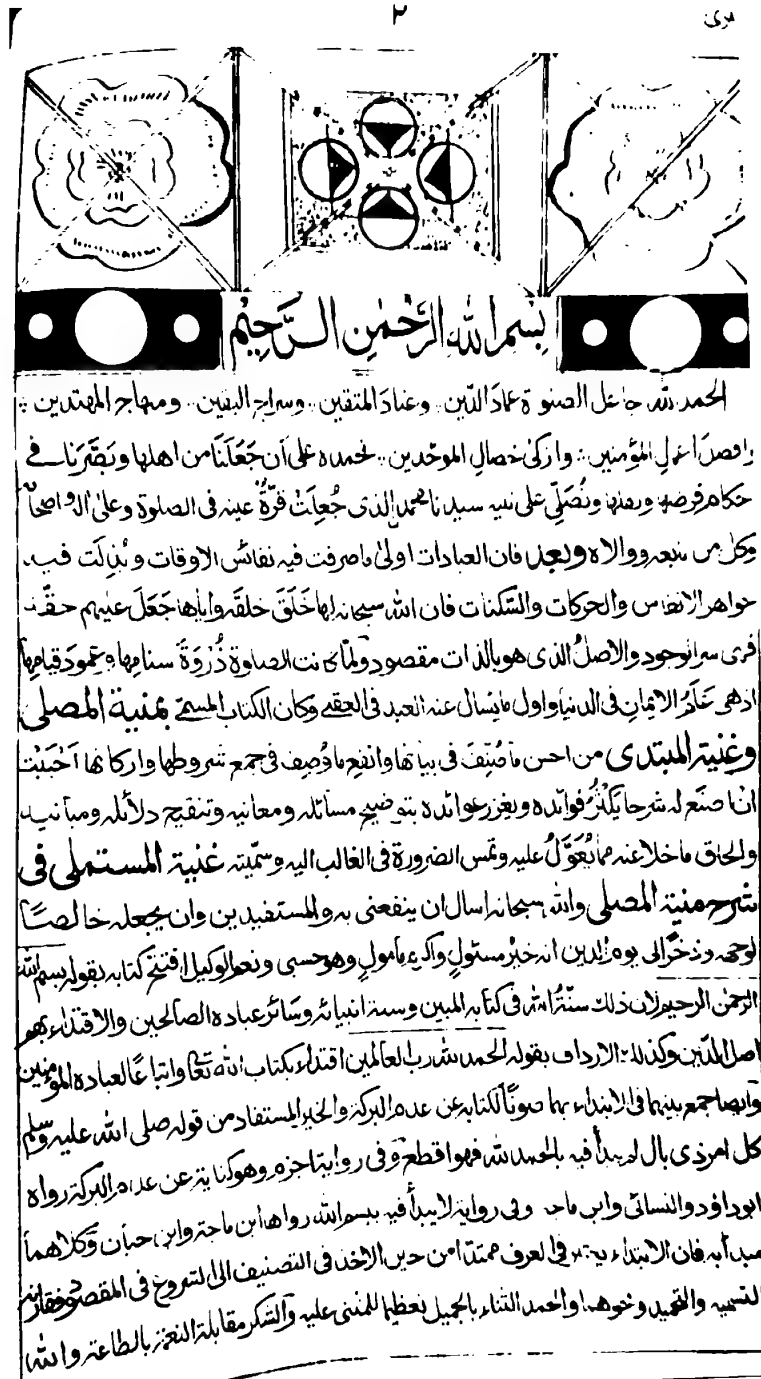 ٢
بسم الله الرحمن الرحيم
الحمد لله جاعل الصلوة عمادَ الدّين وعتادَ المتقين وسراج اليقين ومنهاج المهتدين
وافضلَ اعمالِ المؤمنين وازكىٰ خصالِ الموحّدين نحمده علىٰ اَن جَعَلَنَا من اهلها وبَصَّرَنَا فى
احكام فرضها ونفلها ونُصَلِّى علىٰ نبيه سيدنا محمد الذى جُعِلَت قرّةُ عينه فى الصلوة وعلىٰ اله واصحابه
وكل من تبعه ووالاه وبعد فان العبادات اولىٰ ما صرفت فيه نفائسُ الاوقات وبُذِلَت فيه
جواهر الانفاس والحركات والسّكنات فان الله سبحانه لها خَلَقَ خلقَه واياها جَعَلَ عليهم حقَّه
فهى سر الوجود والاصلُ الذى هو بالذات مقصود ولمّا كانت الصلوة ذُرْوَةَ سنامِها وعمودَ قيامِها
اذ هى عَلَمُ الايمانِ فى الدنيا واول ما يسأل عنه العبد فى العقبى وكان الكتاب المسمّى بمنية المصلى
وغنية المبتدى من احسن ما صُنِّفَ فى بيانها وانفعِ ما وُصِفَ فى جمع شروطها واركانها اَحْبَبْتُ
ان اصنع له شرحا يَكْثُرُ فوائده ويغزر عوائده بتوضيح مسائله ومعانيه وتنقيح دلائله ومبانيه
والحاق ما خلا عنه مما يُعَوَّلُ عليه وتمس الضرورة فى الغالب اليه وسمّيته غنية المستملى فى
شرح منية المصلى والله سبحانه اسال ان ينفعنى به والمستفيدين وان يجعله خالصًا
لوجهه وذخرًا الى يوم الدين انه خيرُ مسئولٍ واكرم مامولٍ وهو حسبى ونعم الوكيل افتتح كتابه بقوله بسم الله
الرحمن الرحيم لان ذلك سنّةُ الله فى كتابه المبين وسنة انبيائه وسائر عباده الصالحين والاقتداء بهم
اصل الدّين وكذلك الارداف بقوله الحمد لله رب العالمين اقتداء بكتاب الله تعالى واتباعًا لعباده المؤمنين
وايضا جمع بينهما فى الابتداء بهما صونًا لكتابه عن عدم البركة والخير المستفاد من قوله صلى الله عليه وسلم
كل امر ذى بال لم يبدأ فيه بالحمد لله فهو اقطع وفى رواية اجزم وهو كناية عن عدم البركة رواه
ابوداؤد والنسائى وابن ماجه وفى رواية لا يبدأ فيه ببسم الله رواها ابن ماجة وابن حبان وكلاهما
مبدأ به فان الابتداء فى العرف ممتدّا من حين الاخذ فى التصنيف الى الشروع فى المقصود فقارنه
التسمية والتحميد ونحوهما والحمد الثناء بالجميل تعظيما للمثنى عليه والشكر مقابلة النعمة بالطاعة والله